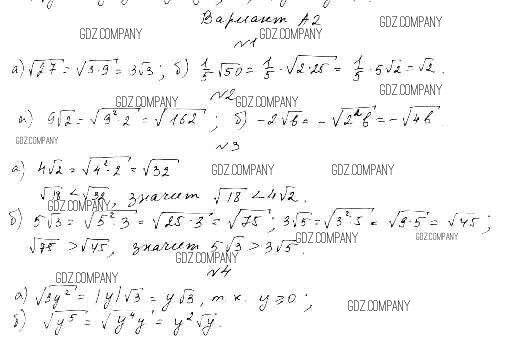 Вариант А2
GDZ.COMPANY GDZ.COMPANY GDZ.COMPANY
№1
а) √27 = √3·9 = 3√3; б) 1/5 √50 = 1/5 · √2·25 = 1/5 · 5√2 = √2.
GDZ.COMPANY
№2
GDZ.COMPANY GDZ.COMPANY
а) 9√2 = √9²·2 = √162; б) -2√b = -√2²b = -√4b.
GDZ.COMPANY
№3
а) 4√2 = √4²·2 = √32
GDZ.COMPANY GDZ.COMPANY
√18 < √32, значит √18 < 4√2.
GDZ.COMPANY
б) 5√3 = √5²·3 = √25·3 = √75; 3√5 = √3²·5 = √9·5 = √45;
GDZ.COMPANY GDZ.COMPANY
√75 > √45, значит 5√3 > 3√5.
GDZ.COMPANY
№4
GDZ.COMPANY
а) √3y² = |y|√3 = y√3, т.к. y ≥ 0;
GDZ.COMPANY
б) √y⁵ = √y⁴y = y²√y.